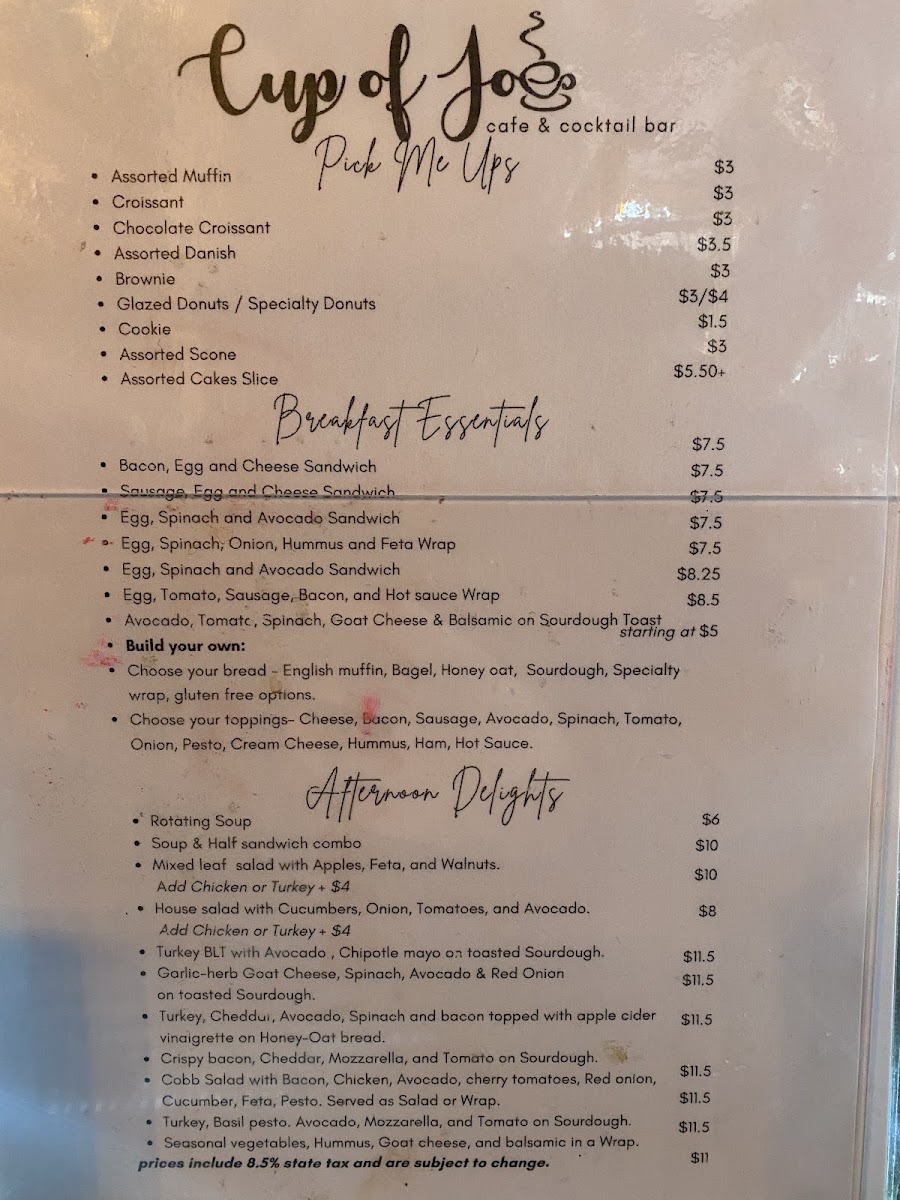 Cup of Joe
cafe & cocktail bar
Pick Me Ups
• Assorted Muffin $3
• Croissant $3
• Chocolate Croissant $3
• Assorted Danish $3.5
• Brownie $3
• Glazed Donuts / Specialty Donuts $3/$4
• Cookie $1.5
• Assorted Scone $3
• Assorted Cakes Slice $5.50+
Breakfast Essentials
• Bacon, Egg and Cheese Sandwich $7.5
• Sausage, Egg and Cheese Sandwich $7.5
• Egg, Spinach and Avocado Sandwich $7.5
• Egg, Spinach, Onion, Hummus and Feta Wrap $7.5
• Egg, Spinach and Avocado Sandwich $7.5
• Egg, Tomato, Sausage, Bacon, and Hot sauce Wrap $8.25
• Avocado, Tomato, Spinach, Goat Cheese & Balsamic on Sourdough Toast $8.5
• Build your own: starting at $5
• Choose your bread - English muffin, Bagel, Honey oat, Sourdough, Specialty
wrap, gluten free options.
• Choose your toppings- Cheese, Bacon, Sausage, Avocado, Spinach, Tomato,
Onion, Pesto, Cream Cheese, Hummus, Ham, Hot Sauce.
Afternoon Delights
• Rotating Soup $6
• Soup & Half sandwich combo $10
• Mixed leaf salad with Apples, Feta, and Walnuts. $10
Add Chicken or Turkey + $4
• House salad with Cucumbers, Onion, Tomatoes, and Avocado. $8
Add Chicken or Turkey + $4
• Turkey BLT with Avocado , Chipotle mayo on toasted Sourdough. $11.5
• Garlic-herb Goat Cheese, Spinach, Avocado & Red Onion $11.5
on toasted Sourdough.
• Turkey, Cheddar, Avocado, Spinach and bacon topped with apple cider $11.5
vinaigrette on Honey-Oat bread.
• Crispy bacon, Cheddar, Mozzarella, and Tomato on Sourdough. $11.5
• Cobb Salad with Bacon, Chicken, Avocado, cherry tomatoes, Red onion, $11.5
Cucumber, Feta, Pesto. Served as Salad or Wrap.
• Turkey, Basil pesto. Avocado, Mozzarella, and Tomato on Sourdough. $11.5
• Seasonal vegetables, Hummus, Goat cheese, and balsamic in a Wrap. $11
prices include 8.5% state tax and are subject to change.